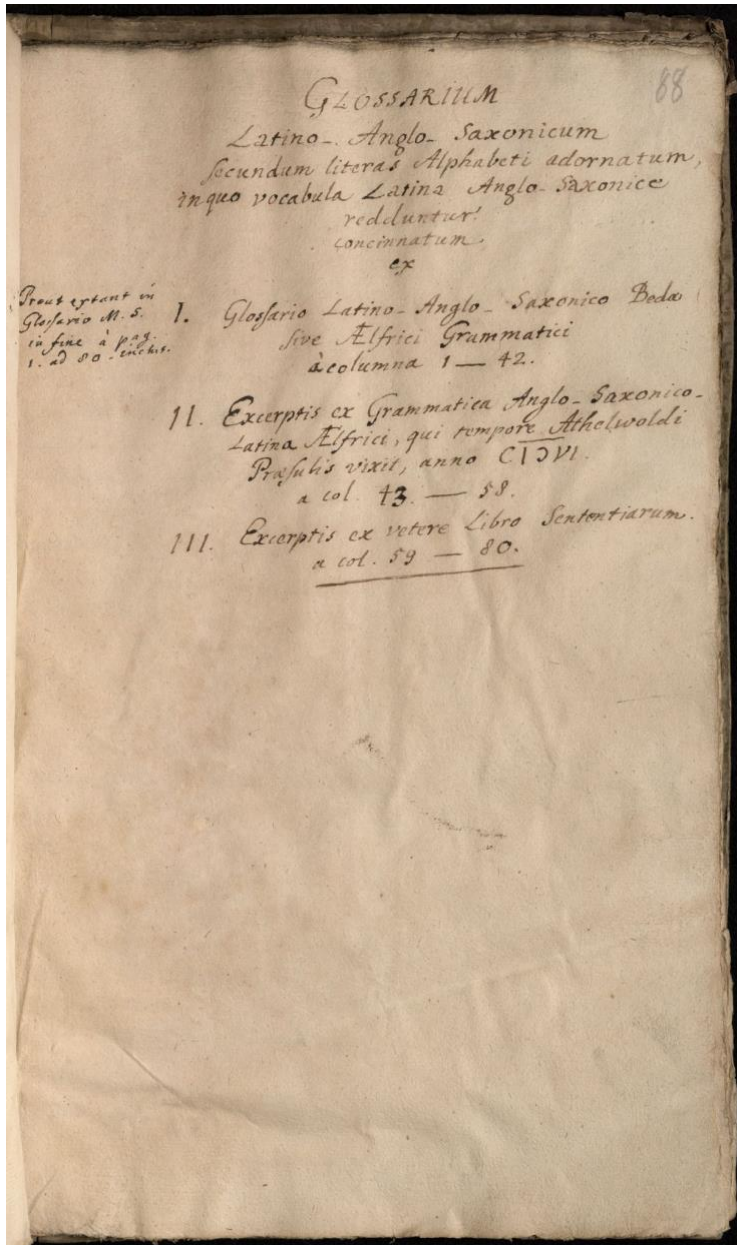 88
GLOSSARIUM
Latino-Anglo-Saxonicum
secundum literas Alphabeti adornatum,
in quo vocabula Latina Anglo-Saxonice
redduntur:
concinnatum
ex
Prout extant in
Glossario M. S.
in fine à pag.
1. ad 80 inclus.
I. Glossario Latino-Anglo-Saxonico Bedæ
sive Ælfrici Grammatici
à columna 1 — 42.
II. Excerptis ex Grammatica Anglo-Saxonico-
Latina Ælfrici, qui tempore Athelwoldi
Præsulis vixit, anno CIƆVI.
a col. 43. — 58.
III. Excerptis ex vetere Libro Sententiarum.
a col. 59 — 80.